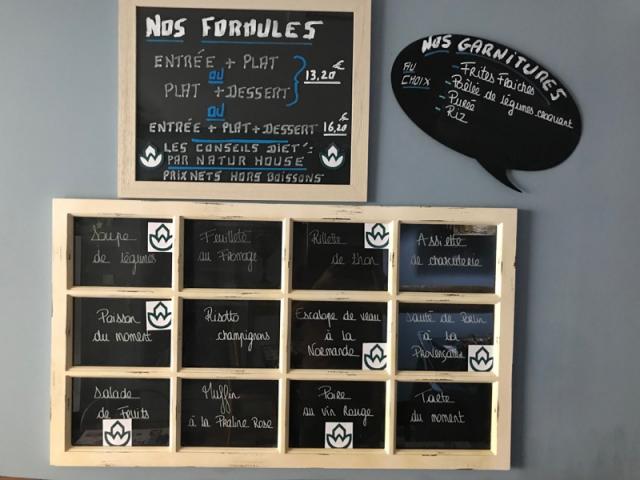 NOS FORMULES
ENTRÉE + PLAT
OU
PLAT + DESSERT
13,20 €
OU
ENTRÉE + PLAT + DESSERT 16,20 €
LES CONSEILS DIET':
PAR NATUR HOUSE
PRIX NETS HORS BOISSONS
NOS GARNITURES
AU
CHOIX
- Frites Fraîches
- Poêlée de légumes croquant
- Purée
- Riz
Soupe
de légumes
Feuilleté
au Fromage
Rillette
de thon
Assiette
de charcuterie
Poisson
du moment
Risotto
champignons
Escalope de veau
à la
Normande
Sauté de Porc
à la
Provençale
Salade
de Fruits
Muffin
à la Praline Rose
Poire
au vin Rouge
Tarte
du moment